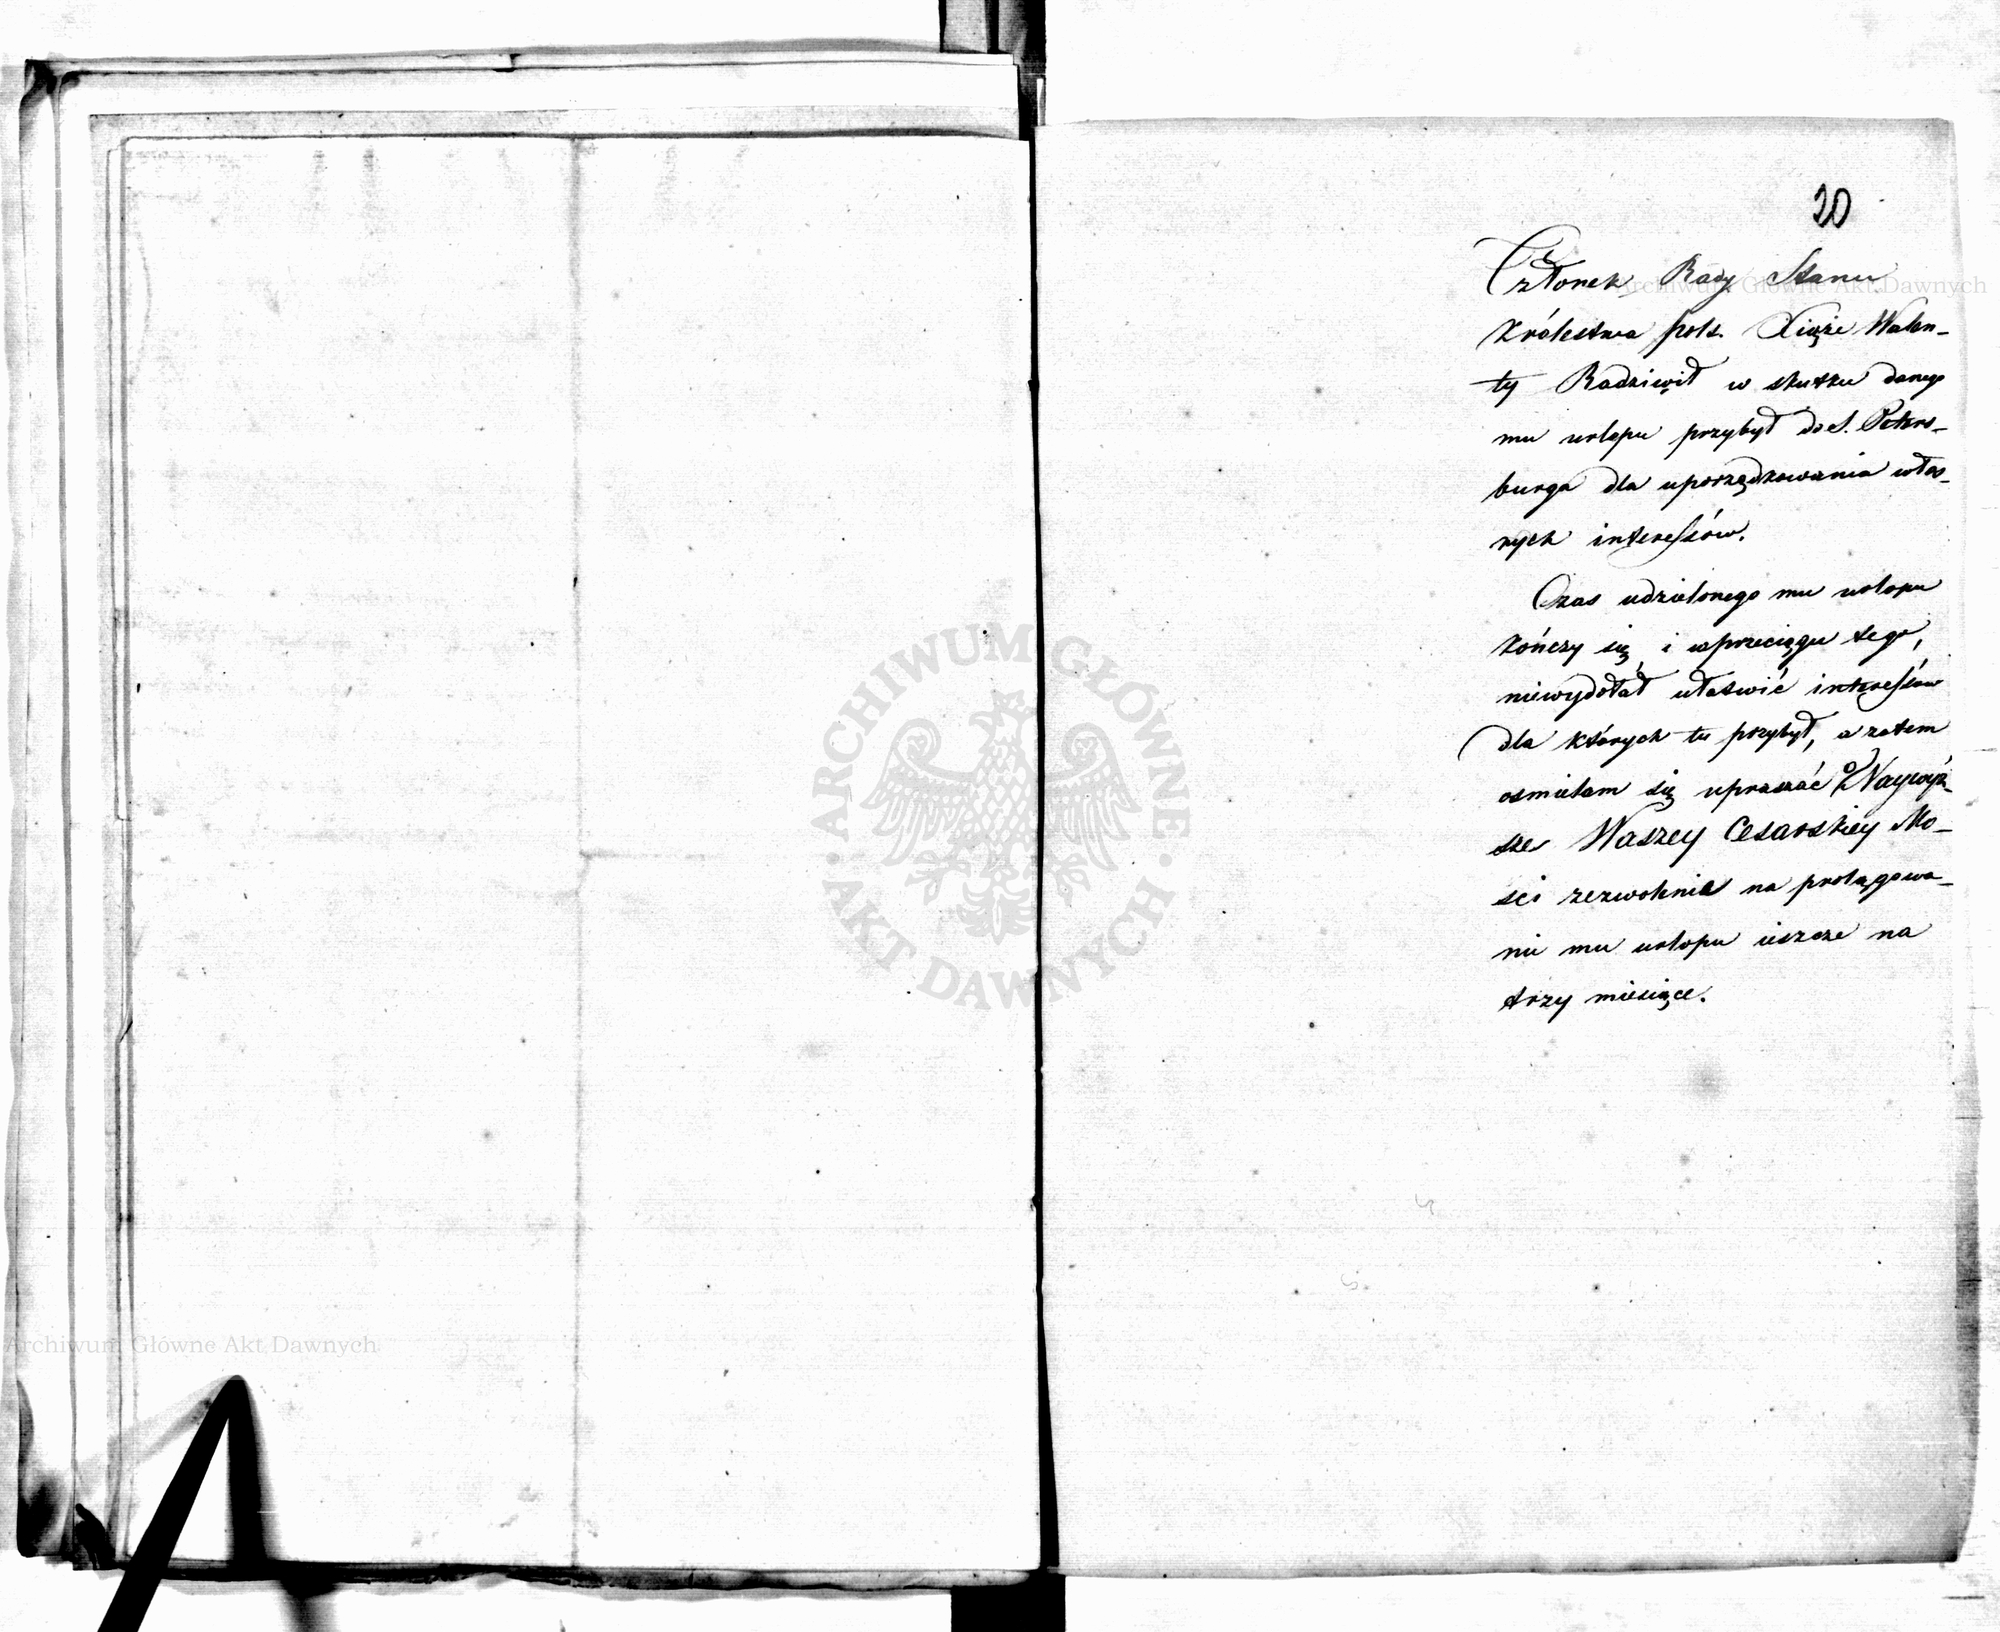 20
Członek Rady Stanu
Królestwa pols. Xiąże Walen-
ty Radziwił w skutku danego
mu urlopu przybył do S. Peters-
burga dla uporządkowania włas-
nych interessów.
Czas udzielonego mu urlopu
kończy się, i w przeciągu tego,
niewydołał ułatwić interessów
dla których tu przybył, a zatem
osmielam się upraszać o Naywyż-
sze Waszey Cesarskiey Mo-
sci zezwolenie na prolągowa-
nie mu urlopu ieszcze na
trzy miesiące.
ARCHIWUM GŁÓWNE AKT DAWNYCH
Archiwum Główne Akt Dawnych
Archiwum Główne Akt Dawnych